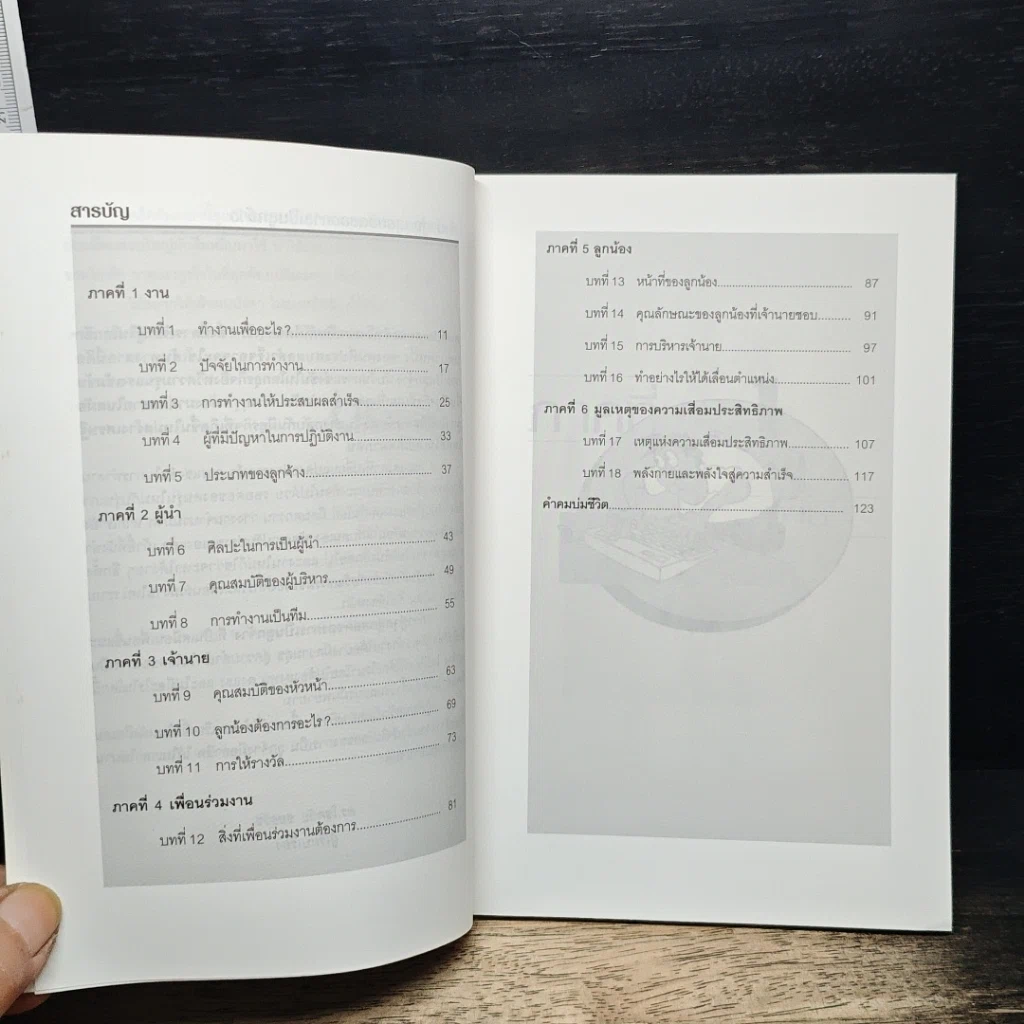 สารบัญ
ภาคที่ 1 งาน
บทที่ 1 ทำงานเพื่ออะไร?.................................... 11
บทที่ 2 ปัจจัยในการทำงาน.................................... 17
บทที่ 3 การทำงานให้ประสบผลสำเร็จ.................... 25
บทที่ 4 ผู้ที่มีปัญหาในการปฏิบัติงาน...................... 33
บทที่ 5 ประเภทของลูกจ้าง................................... 37
ภาคที่ 2 ผู้นำ
บทที่ 6 ศิลปะในการเป็นผู้นำ................................. 43
บทที่ 7 คุณสมบัติของผู้บริหาร............................... 49
บทที่ 8 การทำงานเป็นทีม..................................... 55
ภาคที่ 3 เจ้านาย
บทที่ 9 คุณสมบัติของหัวหน้า................................ 63
บทที่ 10 ลูกน้องต้องการอะไร?.............................. 69
บทที่ 11 การให้รางวัล........................................... 73
ภาคที่ 4 เพื่อนร่วมงาน
บทที่ 12 สิ่งที่เพื่อนร่วมงานต้องการ....................... 81
ภาคที่ 5 ลูกน้อง
บทที่ 13 หน้าที่ของลูกน้อง.................................... 87
บทที่ 14 คุณลักษณะของลูกน้องที่เจ้านายชอบ.......... 91
บทที่ 15 การบริหารเจ้านาย................................... 97
บทที่ 16 ทำอย่างไรให้ได้เลื่อนตำแหน่ง.................... 101
ภาคที่ 6 มูลเหตุของความเสื่อมประสิทธิภาพ
บทที่ 17 เหตุแห่งความเสื่อมประสิทธิภาพ................. 107
บทที่ 18 พลังกายและพลังใจสู่ความสำเร็จ................ 117
คำคมบ่มชีวิต........................................................ 123